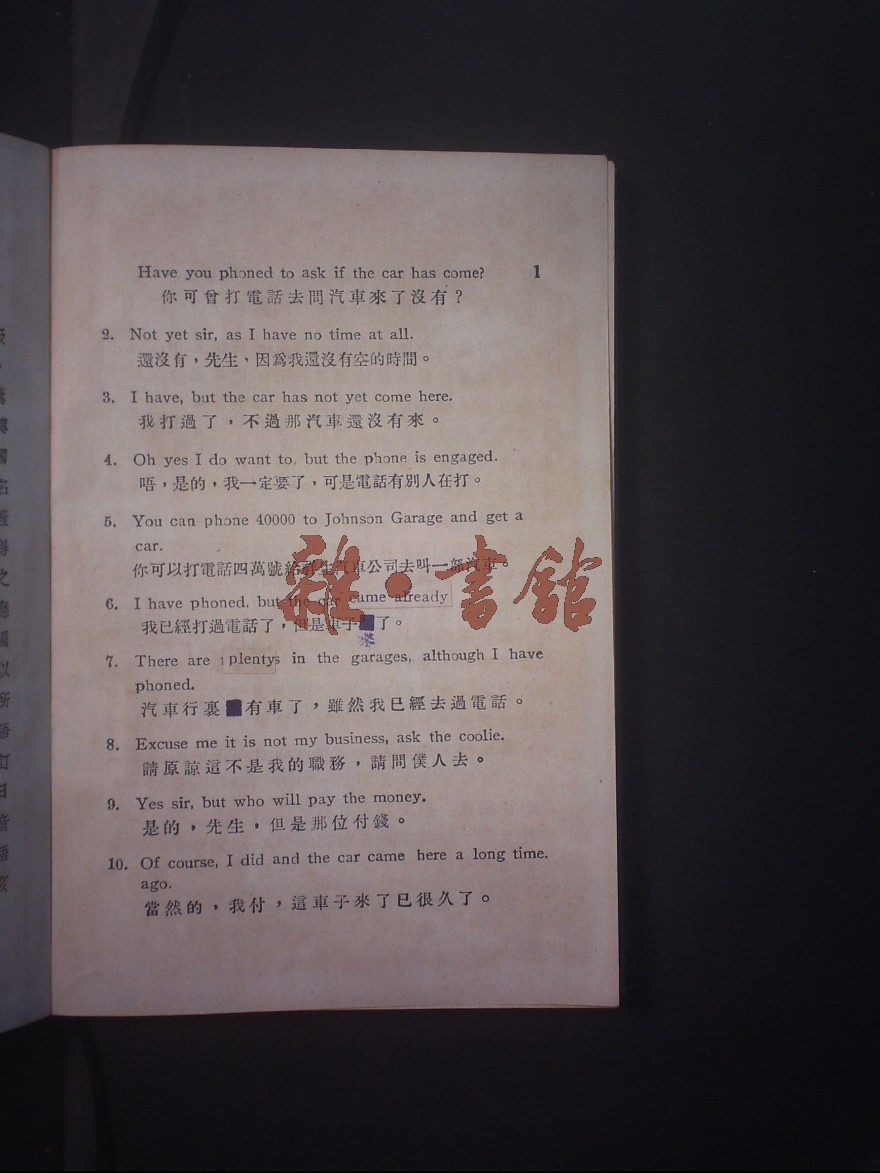 Have you phoned to ask if the car has come? 1
你可曾打電話去問汽車來了沒有？
2. Not yet sir, as I have no time at all.
還沒有，先生、因爲我還沒有空的時間。
3. I have, but the car has not yet come here.
我打過了，不過那汽車還沒有來。
4. Oh yes I do want to, but the phone is engaged.
唔，是的，我一定要了，可是電話有別人在打。
5. You can phone 40000 to Johnson Garage and get a
car.
你可以打電話四萬號給祥生汽車公司去叫一部汽車。
6. I have phoned, but the car came already
我已經打過電話了，但是車子了。
來
7. There are plentys in the garages, although I have
phoned.
汽車行裏有車了，雖然我已經去過電話。
8. Excuse me it is not my business, ask the coolie.
請原諒這不是我的職務，請問僕人去。
9. Yes sir, but who will pay the money.
是的，先生，但是那位付錢。
10. Of course, I did and the car came here a long time.
ago.
當然的，我付，這車子來了已很久了。
雜·書館